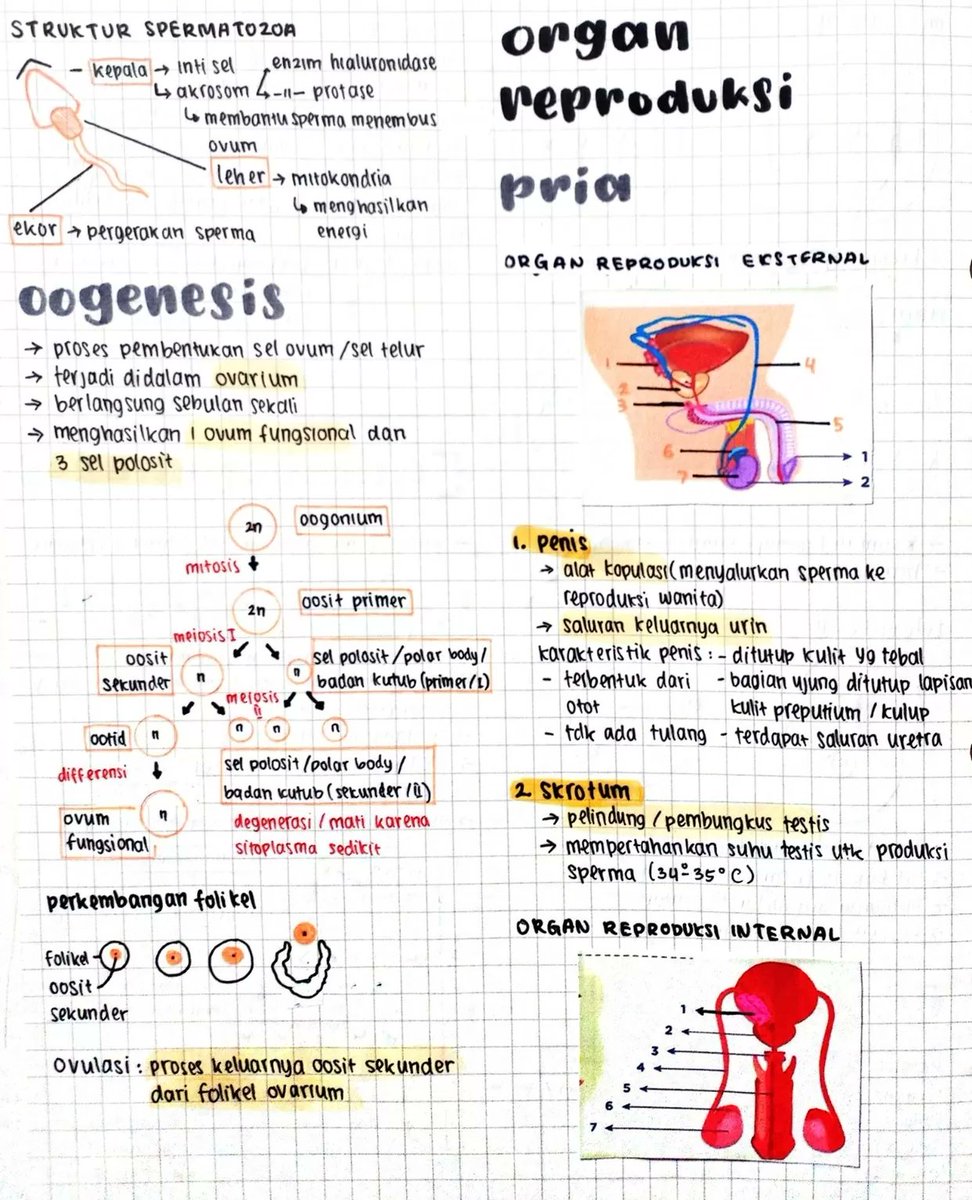 STRUKTUR SPERMATOZOA
kepala → inti sel
↳ akrosom ↳ enzim hialuronidase
-||- protase
↳ membantu sperma menembus
ovum
leher → mitokondria
↳ menghasilkan
energi
ekor → pergerakan sperma
oogenesis
→ proses pembentukan sel ovum/sel telur
→ terjadi didalam ovarium
→ berlangsung sebulan sekali
→ menghasilkan 1 ovum fungsional dan
3 sel polosit
2n oogonium
mitosis
2n oosit primer
meiosis I
oosit
sekunder
n
n
sel polosit/polar body/
badan kutub (primer/I)
meiosis
II
ootid n
n n n
differensi
sel polosit/polar body/
badan kutub (sekunder/II)
ovum
fungsional
n
degenerasi/mati karena
sitoplasma sedikit
perkembangan folikel
folikel
oosit
sekunder
ovulasi : proses keluarnya oosit sekunder
dari folikel ovarium
organ
reproduksi
pria
ORGAN REPRODUKSI EKSTERNAL
1
2
3
4
5
6
7
1
2
1. penis
→ alat kopulasi (menyalurkan sperma ke
reproduksi wanita)
→ saluran keluarnya urin
karakteristik penis :
- terbentuk dari
otot
- tdk ada tulang
- ditutup kulit yg tebal
- bagian ujung ditutup lapisan
kulit preputium / kulup
- terdapat saluran uretra
2 skrotum
→ pelindung / pembungkus testis
→ mempertahankan suhu testis utk produksi
sperma (34°-35°C)
ORGAN REPRODUKSI INTERNAL
1
2
3
4
5
6
7